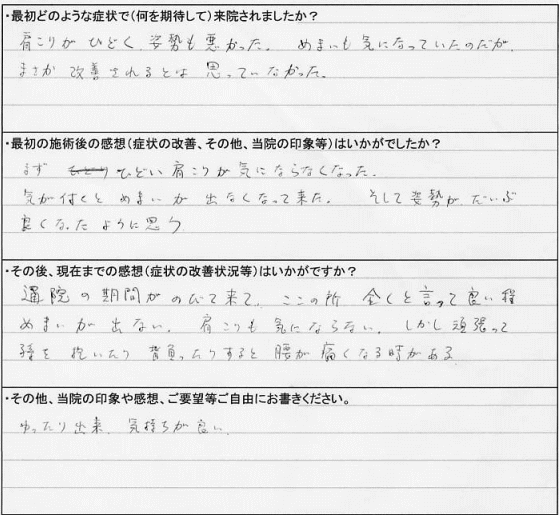 ・最初どのような症状で(何を期待して)来院されましたか？
肩こりが ひどく、姿勢も悪かった。 めまいも気になっていたのだが、
まさか 改善されるとは 思っていなかった。
・最初の施術後の感想(症状の改善、その他、当院の印象等)はいかがでしたか？
まず ひどい 肩こりが 気にならなくなった。
気が付くと めまいが 出なくなって来た。 そして姿勢が だいぶ
良くなったように思う
・その後、現在までの感想(症状の改善状況等)はいかがですか？
通院の期間が のびて来て、 ここの所 全くと言って良い程
めまいが出ない。 肩こりも気にならない。 しかし頑張って
孫を抱いたり 背負ったりすると 腰が痛くなる時がある
・その他、当院の印象や感想、ご要望等ご自由にお書きください。
ゆったり出来、気持ちが良い、